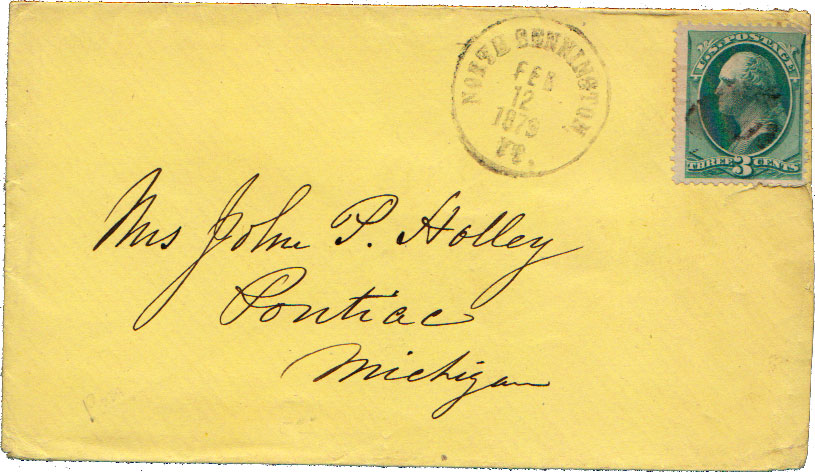 NORTH BENNINGTON
FEB
12
1879
VT.
U.S. POSTAGE
THREE 3 CENTS
Mrs John P. Holley
Pontiac
Michigan